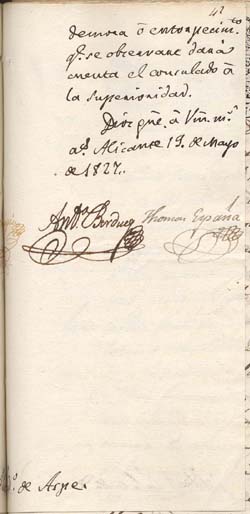 42
demora ô entorpecimto
qe. se observare dara
cuenta el consulado â
la Superioridad.
Dios gue. â Vm. ms.
as. Alicante 19. de Mayo
de 1827.
Anto. Berdug Thomas España
de Aspe.